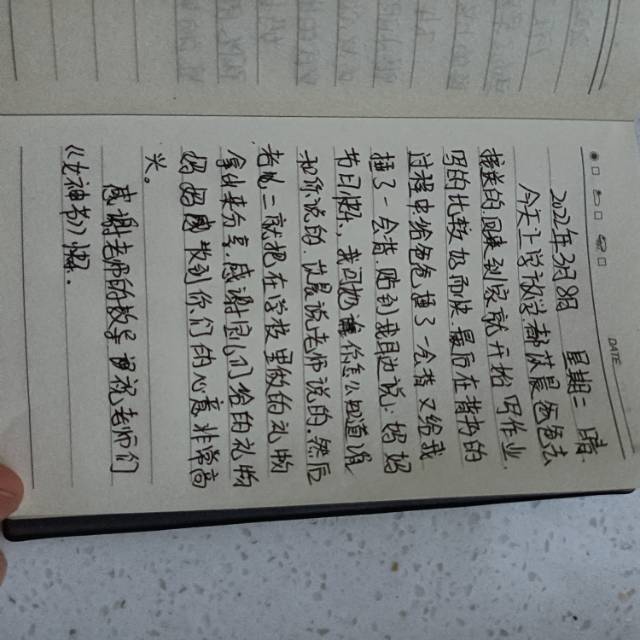 DATE
2022年3月8日 星期二 晴
今天上学放学都是爸爸去
接送的,回来到家就开始写作业,
写的比较少而快,最后在背书的
过程中给爸爸揰了一会背,又给我
揰了一会背,贴到我耳边说:妈妈
节日快乐,我问她你怎么知道说
和听说的,她是说老师说的,然后
老二就把在学校里做的礼物
拿出来分享,感谢宝儿们给的礼物
妈妈收到你们的心意非常高
兴。
感谢老师的教导更祝老师们
《女神节》快乐。